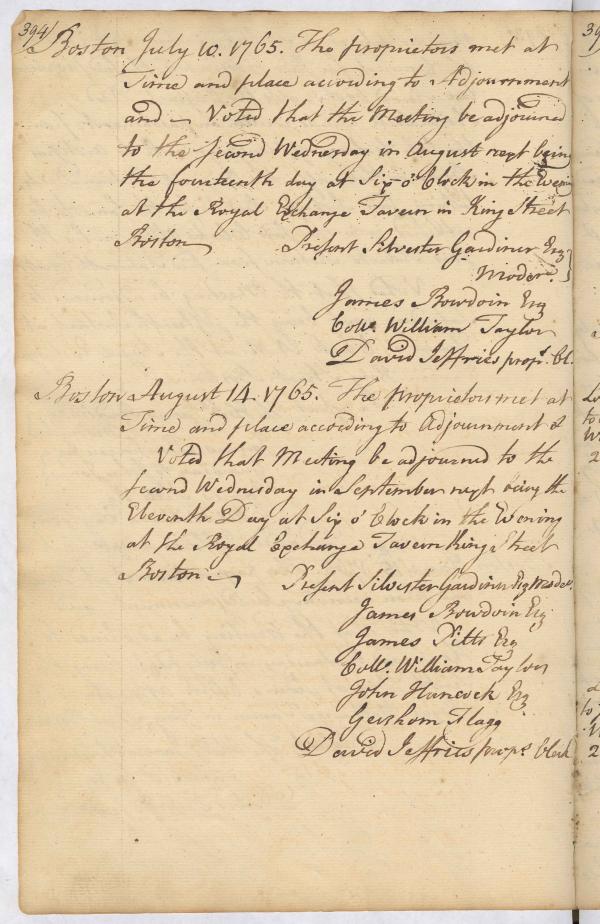 394
Boston July 10. 1765. The proprietors met at
Time and place according to Adjournment
and Voted that the Meeting be adjourned
to the second Wednesday in August next being
the fourteenth day at Six o'Clock in the Evening
at the Royal Exchange Tavern in King Street
Boston Present Silvester Gardiner Esq
Moder.
James Bowdoin Esq
Collo. William Taylor
David Jeffries prop.s Cl.
Boston August 14. 1765. The proprietors met at
Time and place according to Adjournment &
Voted that Meeting be adjourned to the
second Wednesday in September next being the
Eleventh Day at Six o'Clock in the Evening
at the Royal Exchange Tavern King Street
Boston Present Silvester Gardiner Esq Moder.
James Bowdoin Esq
James Pitts Esq
Collo. William Taylor
John Hancock Esq
Gershom Flagg
David Jeffries prop.s Clerk